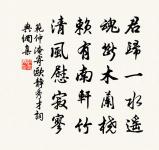 君歸一水遙
魂斷木蘭橈
賴有南軒竹
清風慰寂寥
範仲淹寄歐靜秀才